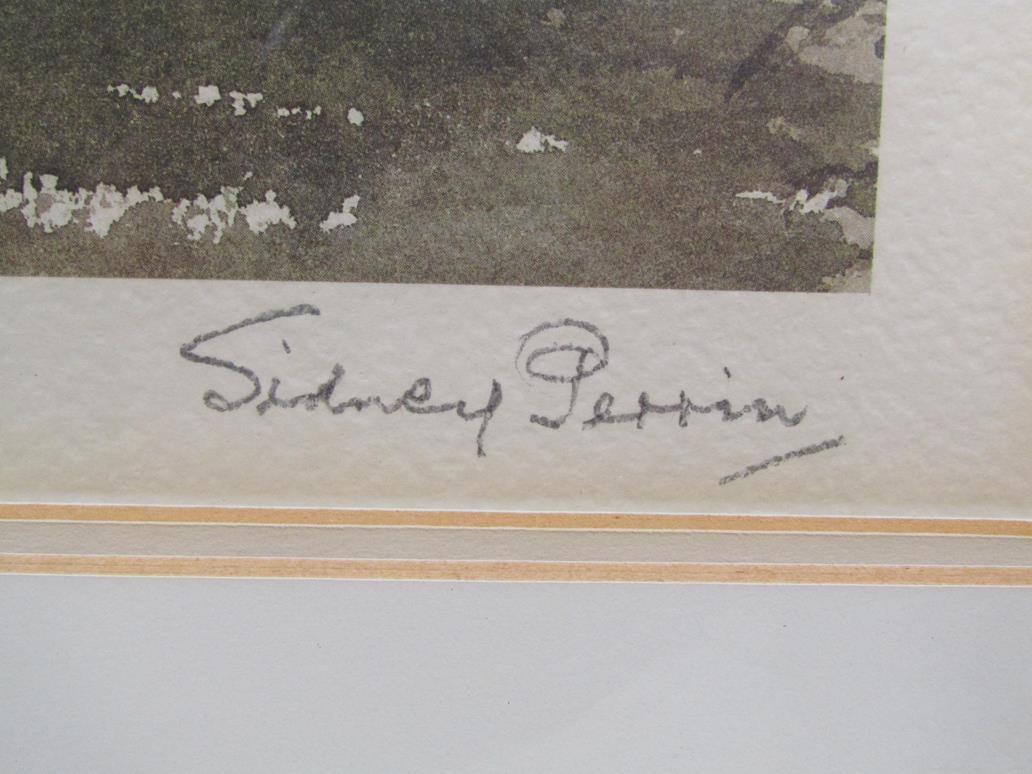 Sidney Perrin